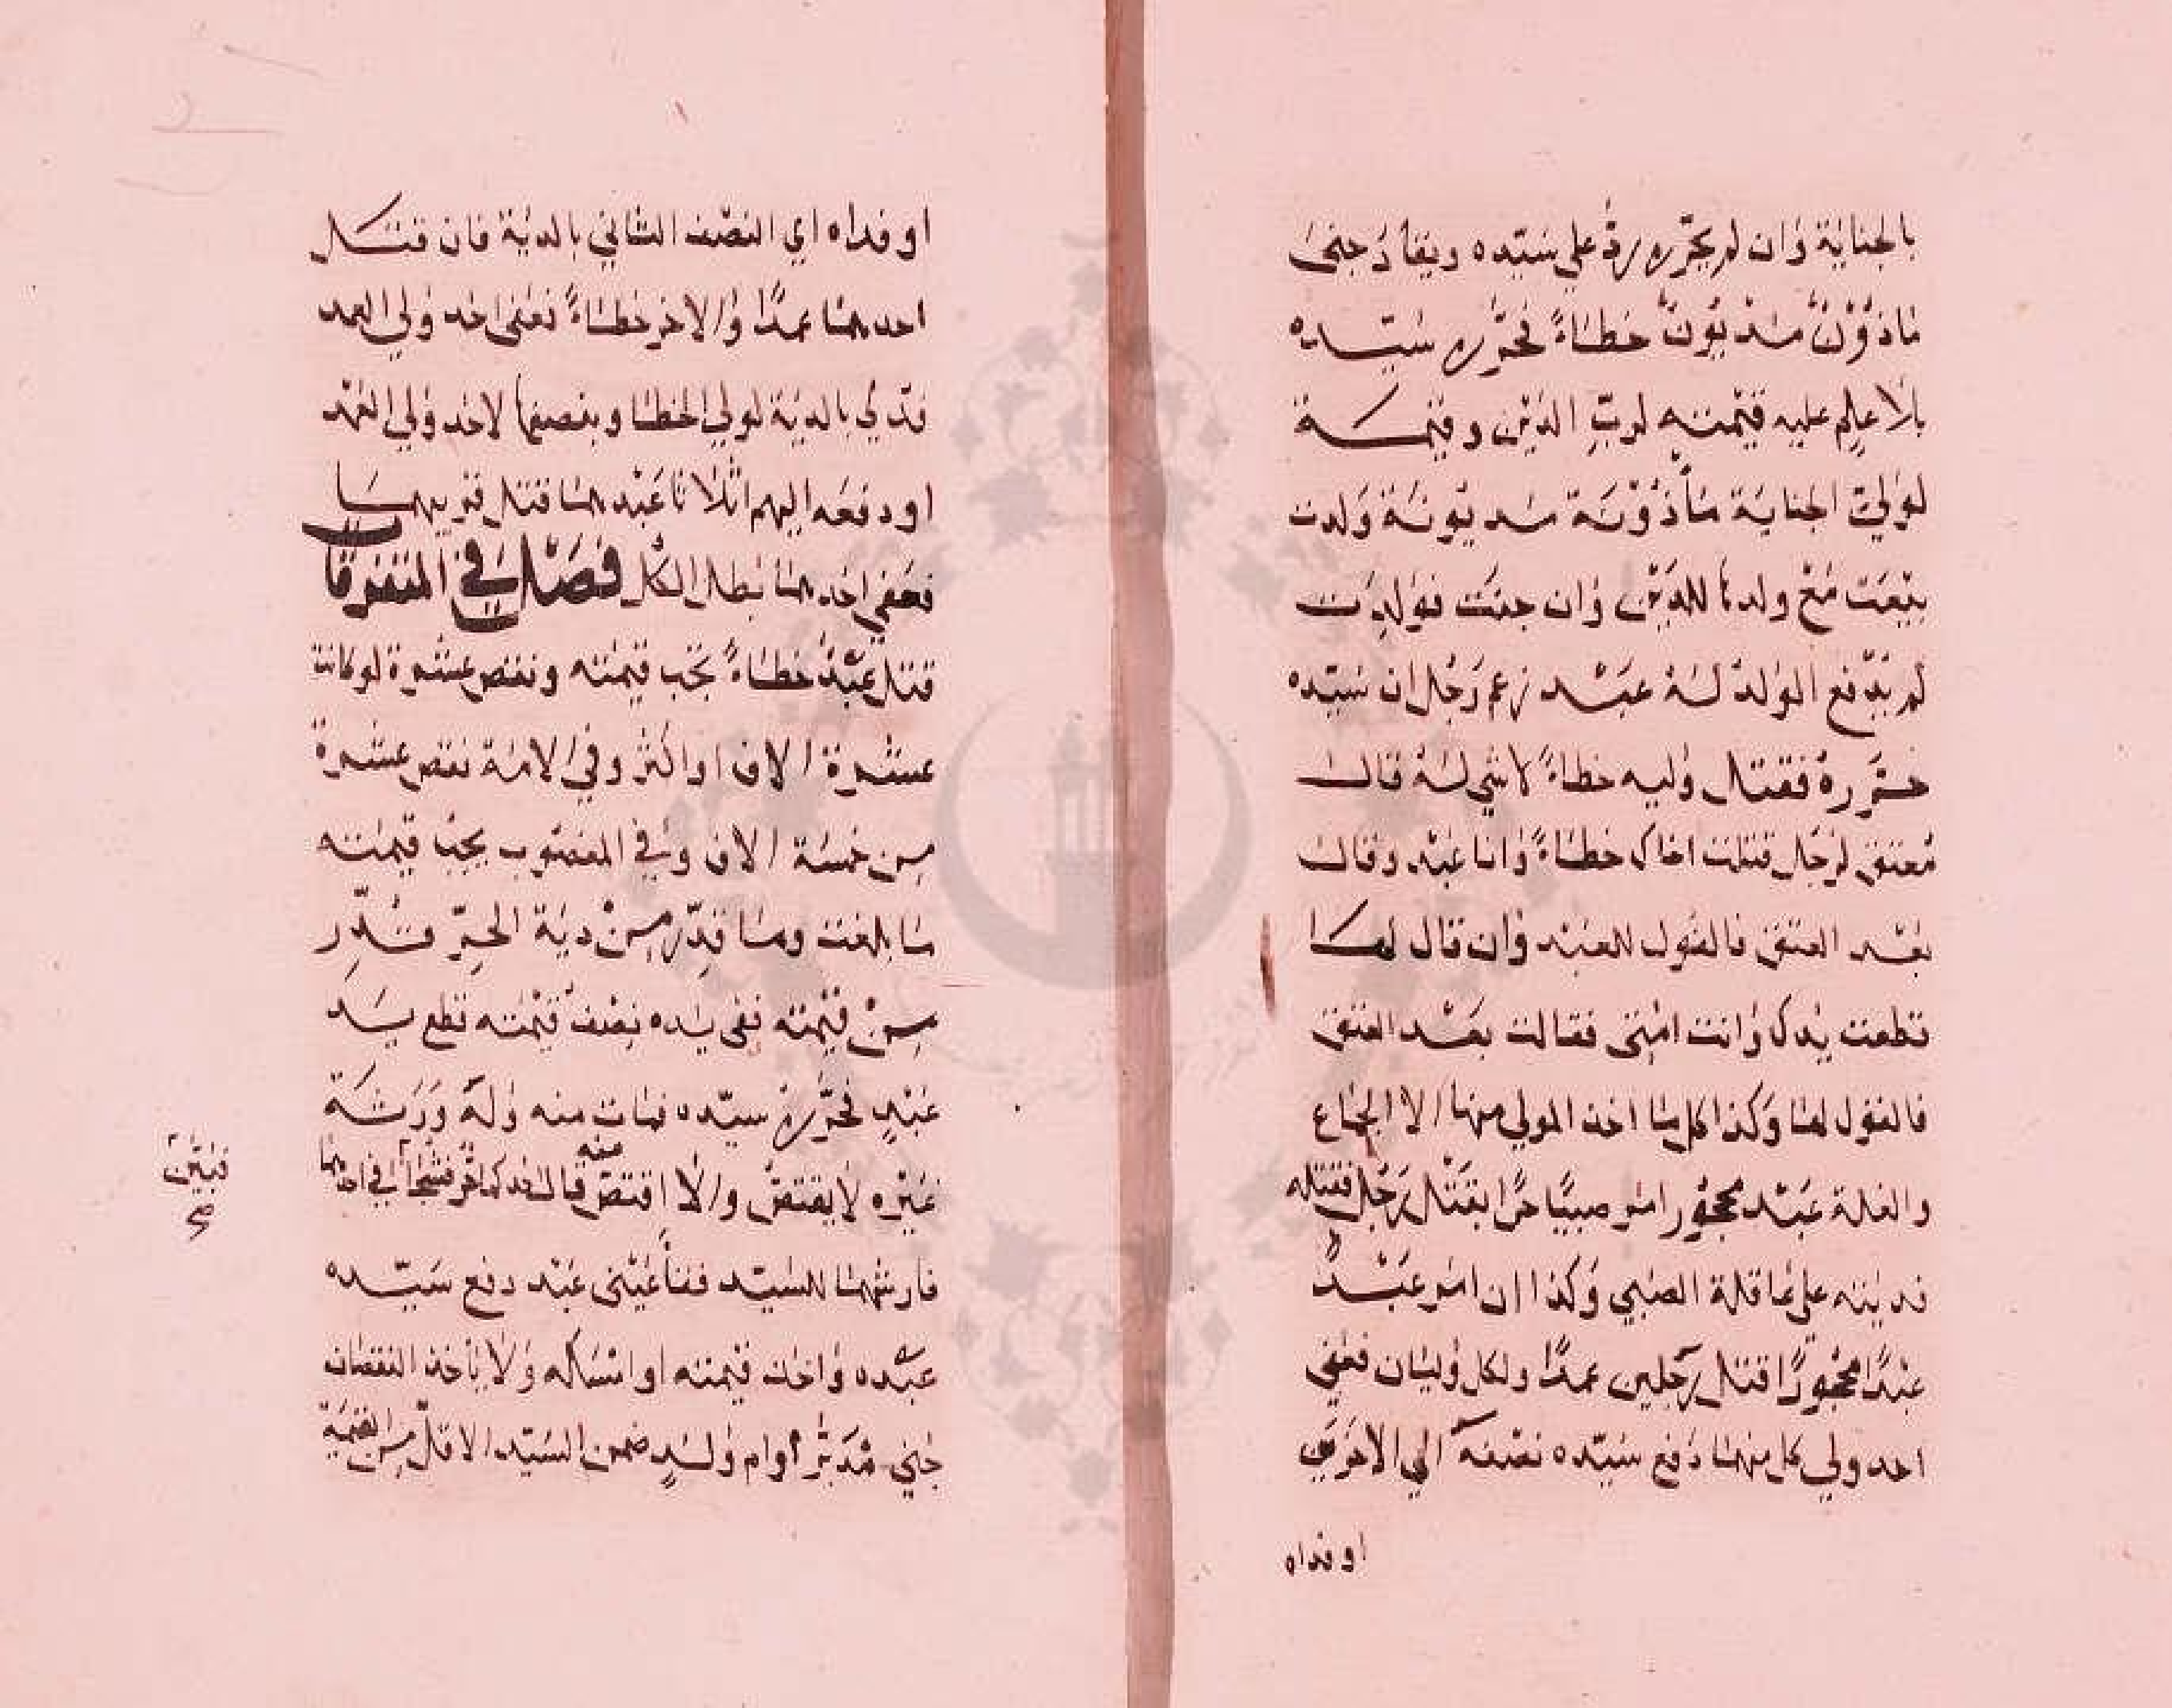 بالجناية وان لم يحرره رد علي سيده ويقاد جني
ماذون مديون خطاءً فحرره سيده
بلا علم عليه قيمته لرب الدين وقيمة
لولي الجناية مأذونة مديونة ولدت
بيعت مع ولدها للدين وان جنت فولدت
لم يدفع الولد له عبد زعم رجل ان سيده
حرره فقتل وليه خطاءً لا شي له قال
معتق لرجل قتلت اخاك خطاءً وانا عبد وقال
بعد العتق فالقول للعبد وان قال لها
قطعت يدك وانت امتي فقالت بعد العتق
فالقول لها وكذا كل ما اخذ المولي منها الا الجماع
والغلة عبد محجور امر صبيا حرا بقتل رجل فقتله
فديته على عاقلة الصبي وكذا ان امر عبد
عبدًا محجورًا قتل رجلين عمدًا ولكل وليان فعفي
احد ولي كل منهما دفع سيده نصفه الي الاخرين
او فداه
او فداه اي النصف الثاني بالدية فان قتل
احدهما عمدًا والاخر خطاءً فعفى احد ولي العمد
فدي بالدية لولي الخطا وبنصفها لاحد ولي العمد
او دفعه اليهم اثلاثا عبدهما قتل قريبهما
فعفي احدهما بطل الكل فصل في المتفرقات
قتل عبد خطاءً تجب قيمته ونقص عشرة لو كانت
عشرة الاف او اكثر وفي الامة نقص عشرة
من خمسة الاف وفي المغصوب يجب قيمته
ما بلغت وما قدر من دية الحر قدر
من قيمته ففى يده نصف قيمته قطع يد
عبد فحرره سيده فمات منه وله ورثة
غيره لا يقتص والا اقتص منه قال احدكما حر فشجا في احدهما
فبين
صح
فارشهما للسيد فقأ عينى عبد دفع سيده
عبده واخذ قيمته او امسكه ولا ياخذ النقصان
جني مدبر أوام ولد ضمن السيد الاقل من القيمة